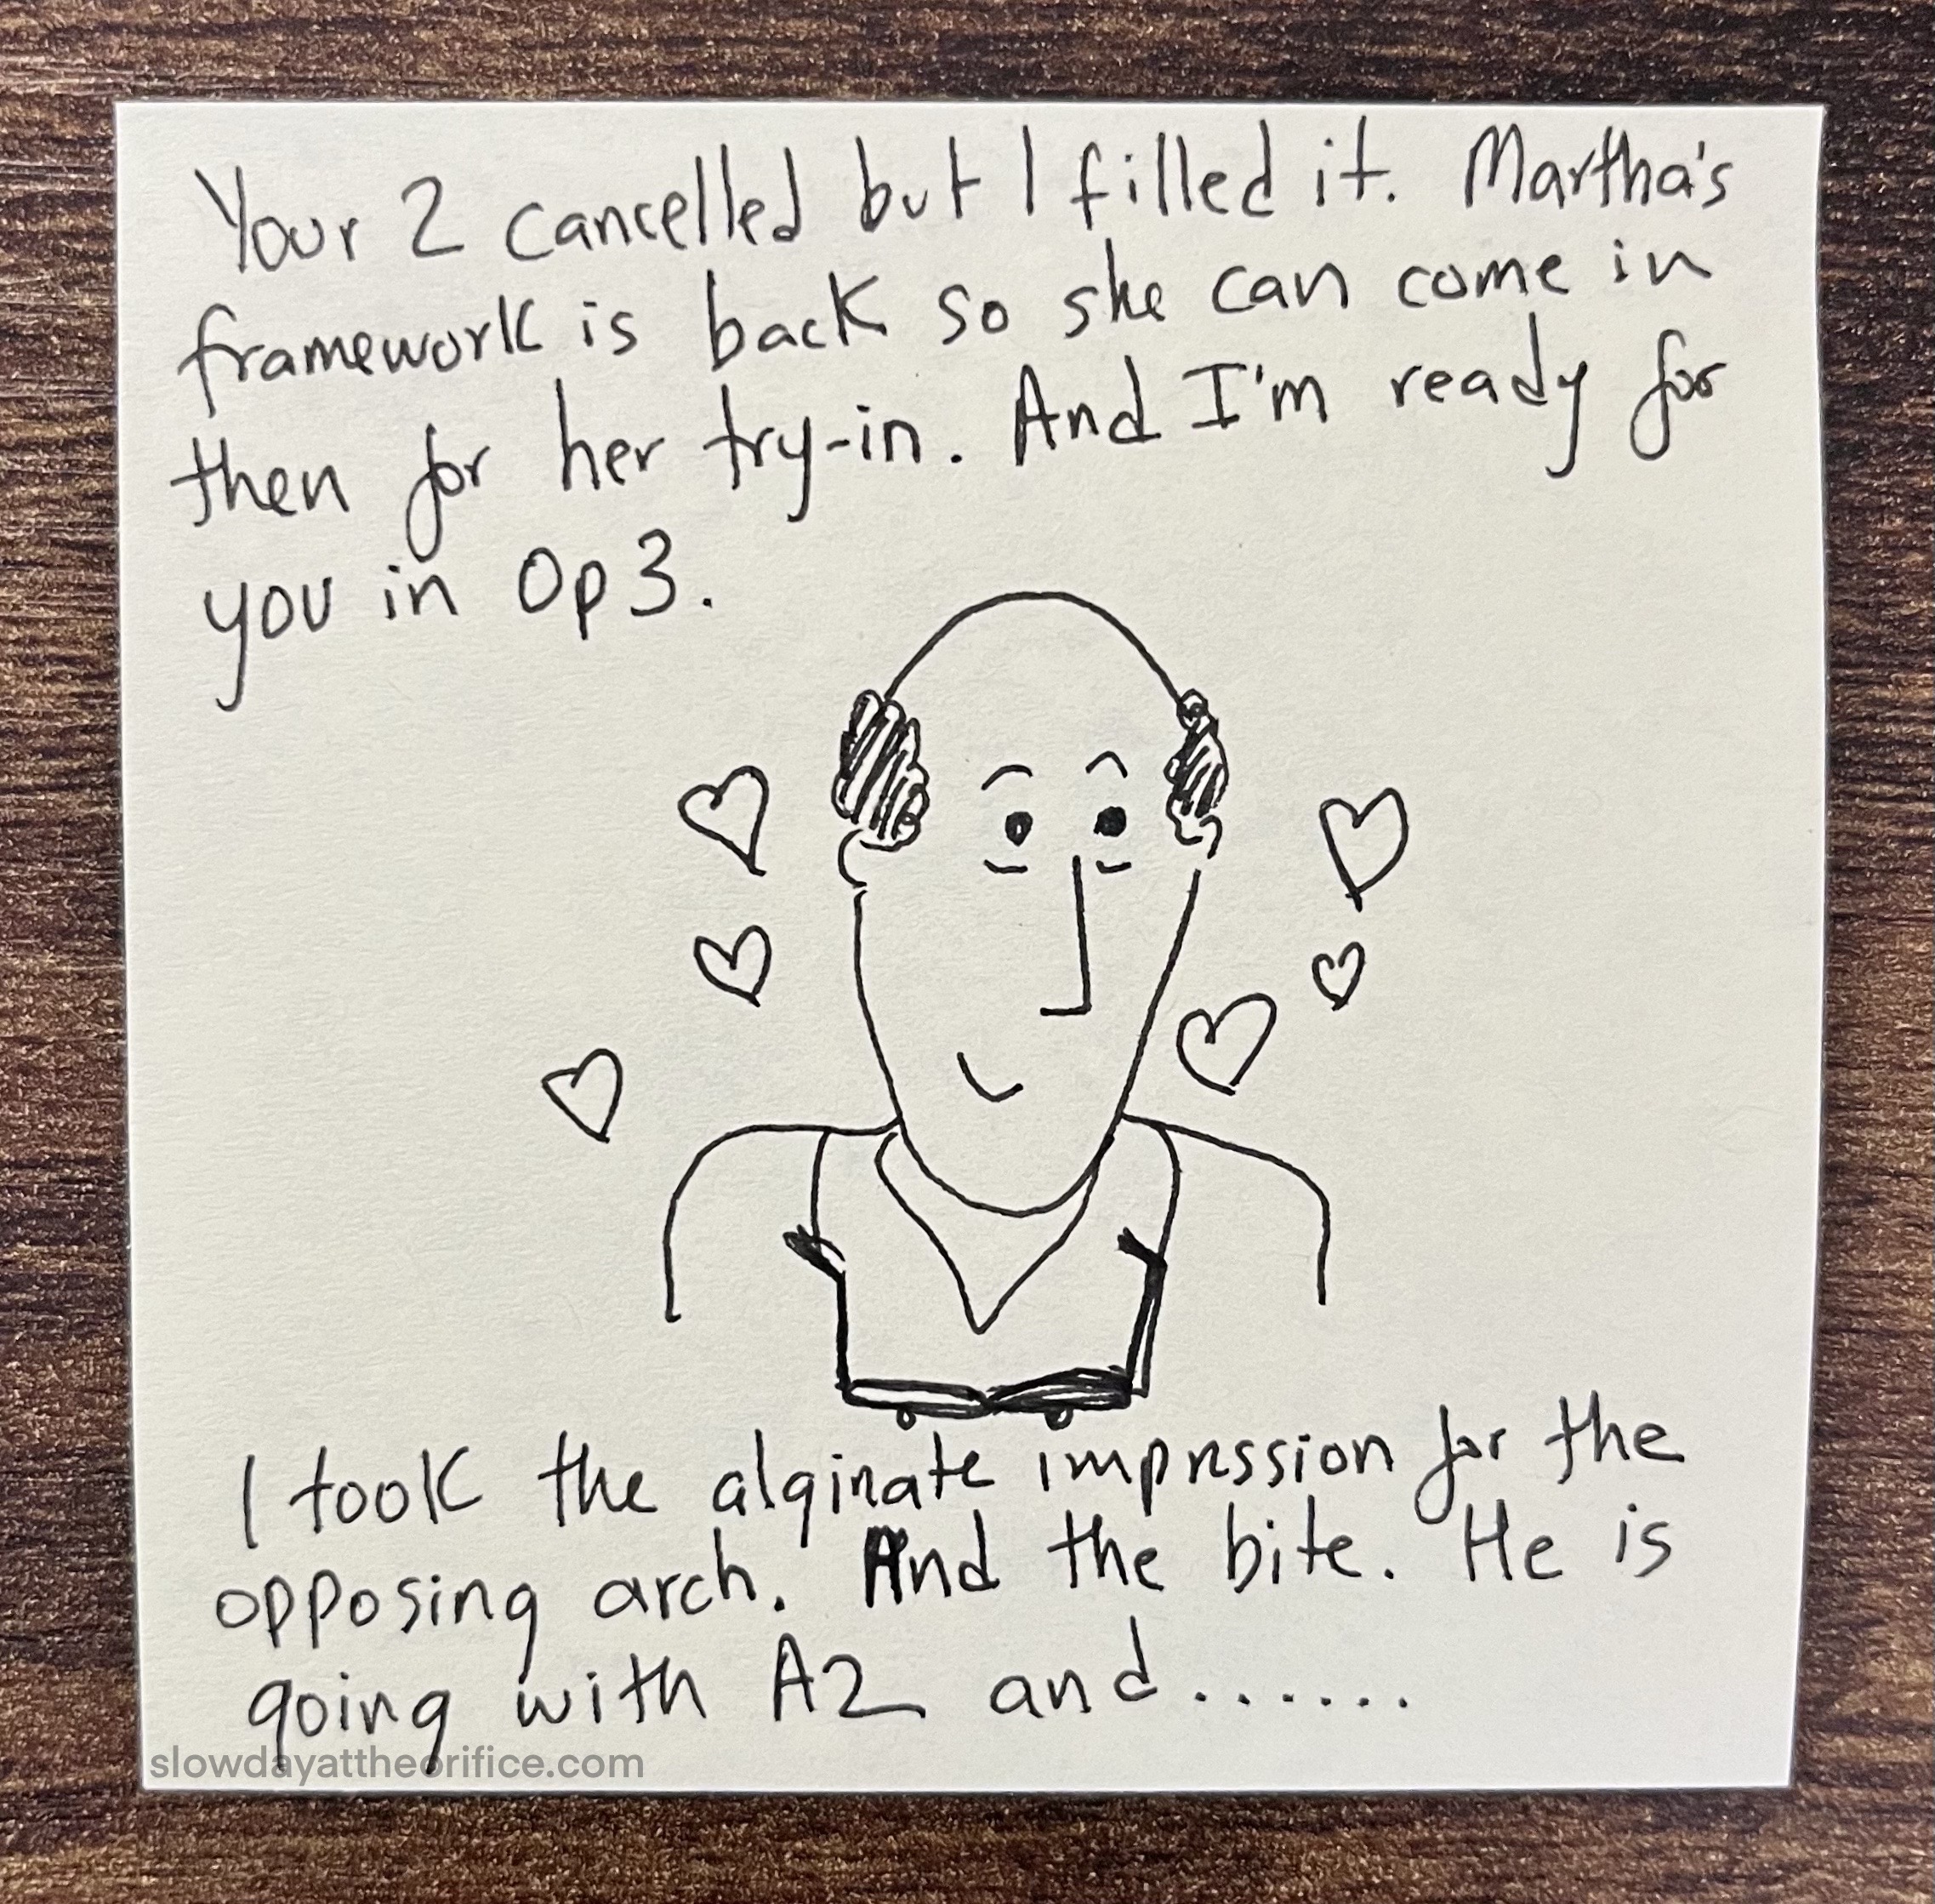 Your 2 cancelled but I filled it. Martha's
framework is back so she can come in
then for her try-in. And I'm ready for
you in Op 3.
I took the alginate impression for the
opposing arch. And the bite. He is
going with A2 and.......
slowdayattheorifice.com